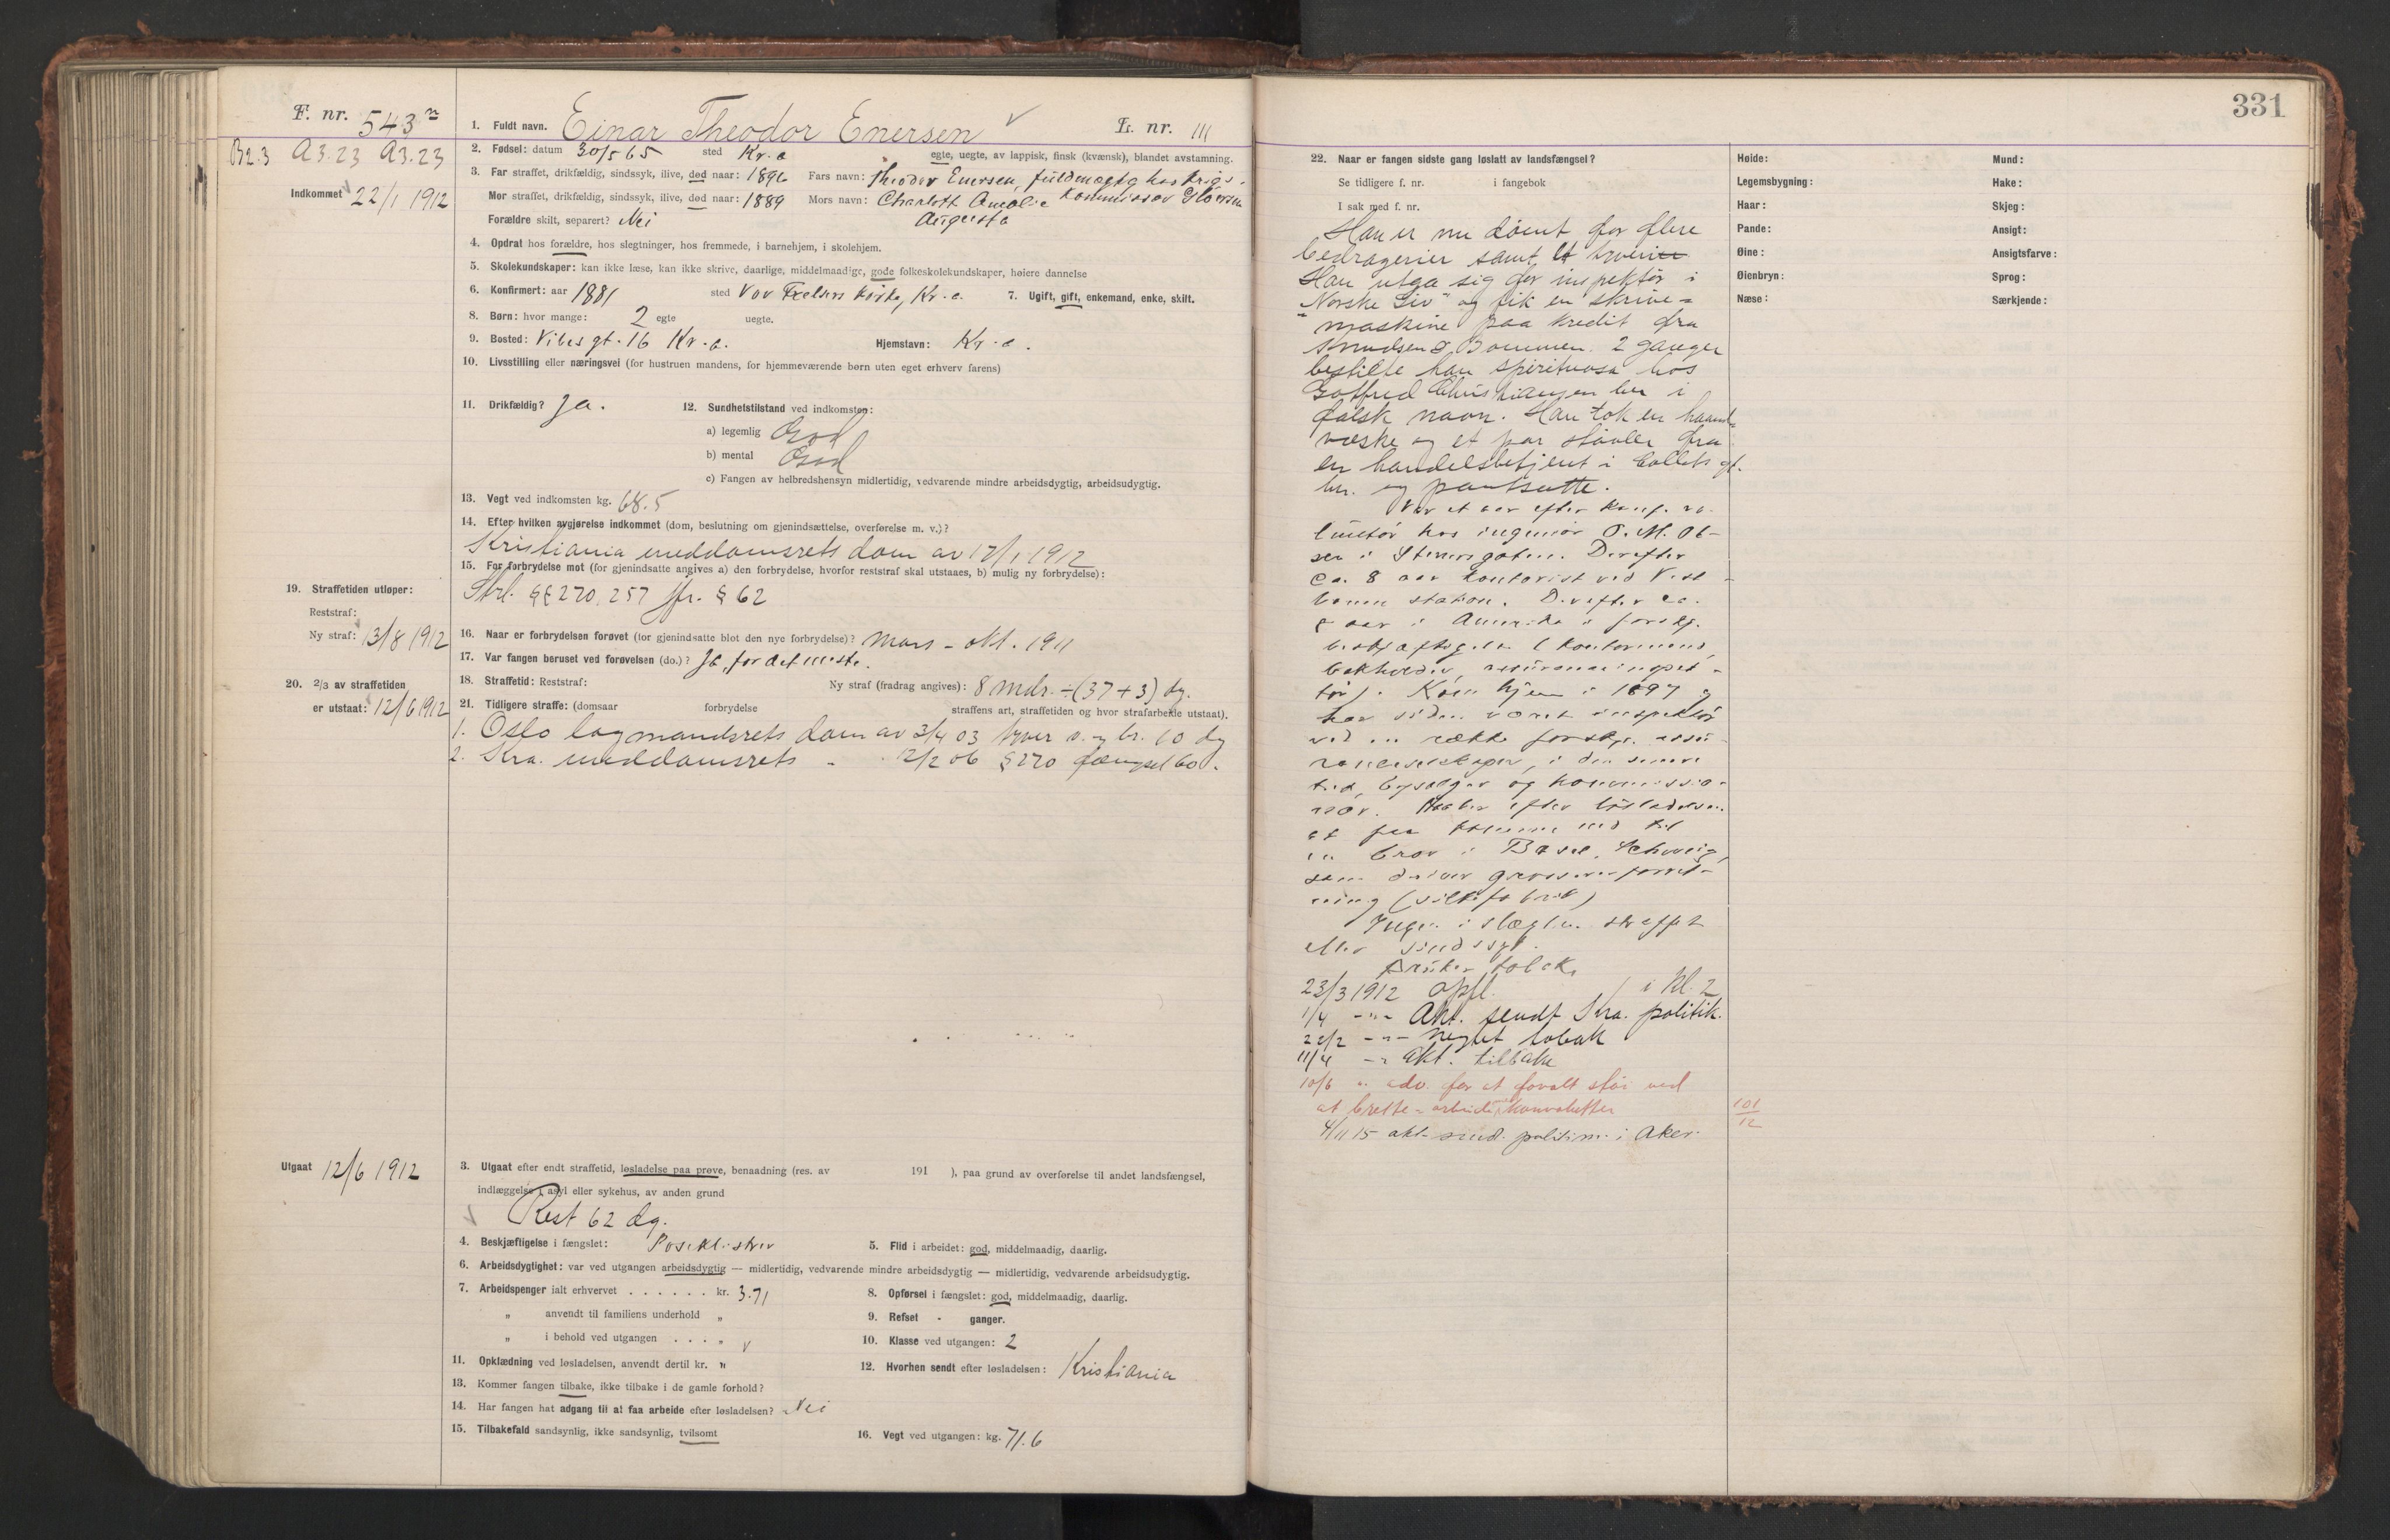 F. nr. 543
B2.3 A3.23 A3.23
Indkommet 22/1 1912
1. Fuldt navn. Einar Theodor Enersen L. nr. 111
2. Fødsel: datum 30/5 65 sted Kr.a egte, uegte, av lappisk, finsk (kvænsk), blandet avstamning.
3. Far straffet, drikfældig, sindssyk, ilive, død naar: 1896 Fars navn: Theodor Enersen, fuldmægtig hos krigs-
Mor straffet, drikfældig, sindssyk, ilive, død naar: 1889 Mors navn: Charlott Amalie kommissær
Augusta
Forældre skilt, separert? Nei
4. Opdrat hos forældre, hos slegtninger, hos fremmede, i barnehjem, i skolehjem.
5. Skolekundskaper: kan ikke læse, kan ikke skrive, daarlige, middelmaadige, gode folkeskolekundskaper, høiere dannelse
6. Konfirmert: aar 1881 sted Vor Frelsers kirke, Kr.a. 7. Ugift, gift, enkemand, enke, skilt.
8. Børn: hvor mange: 2 egte uegte.
9. Bosted: Vibesgt. 16 Kr.a. Hjemstavn: Kr.a.
10. Livsstilling eller næringsvei (for hustruen mandens, for hjemmeværende børn uten eget erhverv farens)
11. Drikfældig? Ja. 12. Sundhetstilstand ved indkomsten:
a) legemlig God
b) mental God
c) Fangen av helbredshensyn midlertidig, vedvarende mindre arbeidsdygtig, arbeidsudygtig.
13. Vegt ved indkomsten kg. 68.5
14. Efter hvilken avgjørelse indkommet (dom, beslutning om gjenindsættelse, overførelse m. v.)?
Kristiania meddomsrets dom av 17/1 1912
15. For forbrydelse mot (for gjenindsatte angives a) den forbrydelse, hvorfor reststraf skal utstaaes, b) mulig ny forbrydelse):
Strl. §§ 270, 257 jfr. § 62
19. Straffetiden utløper:
Reststraf:
Ny straf: 13/8 1912
16. Naar er forbrydelsen forøvet (for gjenindsatte blot den nye forbrydelse)? Mars - okt. 1911
17. Var fangen beruset ved forøvelsen (do.)? Ja, for det meste.
18. Straffetid: Reststraf: Ny straf (fradrag angives): 8 mdr. ÷ (37 + 3) dg.
20. 2/3 av straffetiden
er utstaat: 12/6 1912
21. Tidligere straffe: (domsaar forbrydelse straffens art, straffetiden og hvor strafarbeide utstaat).
1. Oslo lagmandsrets dom av 3/4 03 tyver v. og br. 10 dg
2. Kra. meddomsrets - - 12/2 06 § 270 fængsel 60 -
Utgaat 12/6 1912
3. Utgaat efter endt straffetid, løsladelse paa prøve, benaadning (res. av 191 ), paa grund av overførelse til andet landsfængsel,
indlæggelse i asyl eller sykehus, av anden grund
Rest 62 dg.
4. Beskjæftigelse i fængslet: Poseklistrer 5. Flid i arbeidet: god, middelmaadig, daarlig.
6. Arbeidsdygtighet: var ved utgangen arbeidsdygtig — midlertidig, vedvarende mindre arbeidsdygtig — midlertidig, vedvarende arbeidsudygtig.
7. Arbeidspenger ialt erhvervet . . . . . . kr. 3.71 8. Opførsel i fængslet: god, middelmaadig, daarlig.
" anvendt til familiens underhold " 9. Refset - ganger.
" i behold ved utgangen . . . . " 10. Klasse ved utgangen: 2
11. Opklædning ved løsladelsen, anvendt dertil kr. " 12. Hvorhen sendt efter løsladelsen: Kristiania
13. Kommer fangen tilbake, ikke tilbake i de gamle forhold?
14. Har fangen hat adgang til at faa arbeide efter løsladelsen? Nei
15. Tilbakefald sandsynlig, ikke sandsynlig, tvilsomt 16. Vegt ved utgangen: kg. 71.6
331
22. Naar er fangen sidste gang løslatt av landsfængsel?
Se tidligere f. nr. i fangebok
I sak med f. nr.
Han er nu dømt for flere
bedragerier samt et tyveri
Han utga sig for inspektør i
"Norske Liv" og fik en skrive-
maskine paa kredit fra
Knudsen & Bommen. 2 ganger
bestilte han spirituosa hos
Gotfred Christiansen her i
falsk navn. Han tok en haand-
væske og et par støvler fra
en handelsbetjent i Collets gt.
her. og pantsatte.
Var et aar efter konf. vo-
lontør hos ingeniør O. M. Ol-
sen i Stenersgaten. Derefter
ca. 8 aar kontorist ved Vest-
banen station. Derefter ca.
aar i Amerika i forskj.
beskjæftigelse (kontormand,
bokholder, assuranceinspek-
tør). Kom hjem i 1897 og
har siden været inspektør
ved en række forskj. assu-
ranceselskaper, i den senere
tid, bysælger og kommissio-
nær. Haaber efter løsladelsen
at faa komme ned til
en bror i Basel, Schweiz,
som driver grossererforret-
ning (silkefabrik)
Ingen i slægten straffet
eller sindssyk.
Bruker tobak
23/3 1912 opfl. i kl. 2
1/4 -"- Akt. sendt Kra. politik.
22/2 -"- Negtet tobak
11/4 -"- akt. tilbake
10/6 " adv. for at forvolt støi ved
at brette - arbeide konvolutter
4/11 15 akt. send. politim. i Aker.
Høide:
Legemsbygning:
Haar:
Pande:
Øine:
Øienbryn:
Næse:
Mund:
Hake:
Skjeg:
Ansigt:
Ansigtsfarve:
Sprog:
Særkjende:
101
12